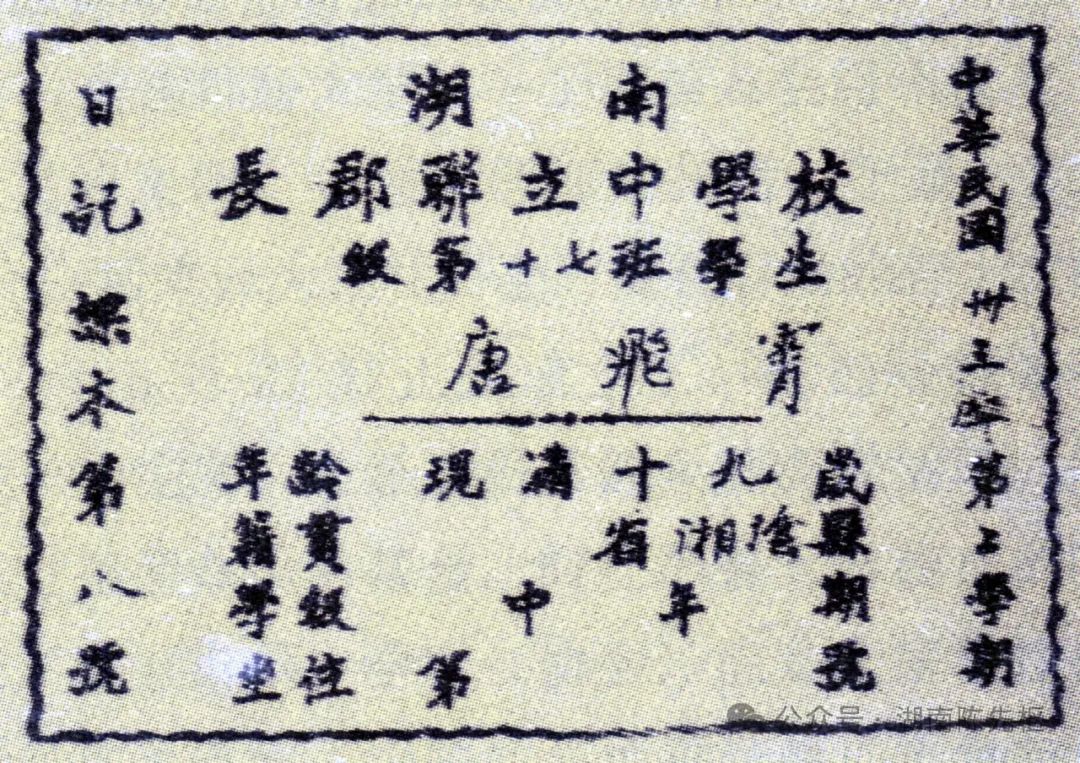 中華民國卅三年第二學期
湖南
長郡聯立中學校
級第十七班學生
唐飛霄
年齡現滿十九歲
籍貫省湘陰縣
學級中年期
坐位第號
日記課本第八號
公众号 · 湖南陈先枢